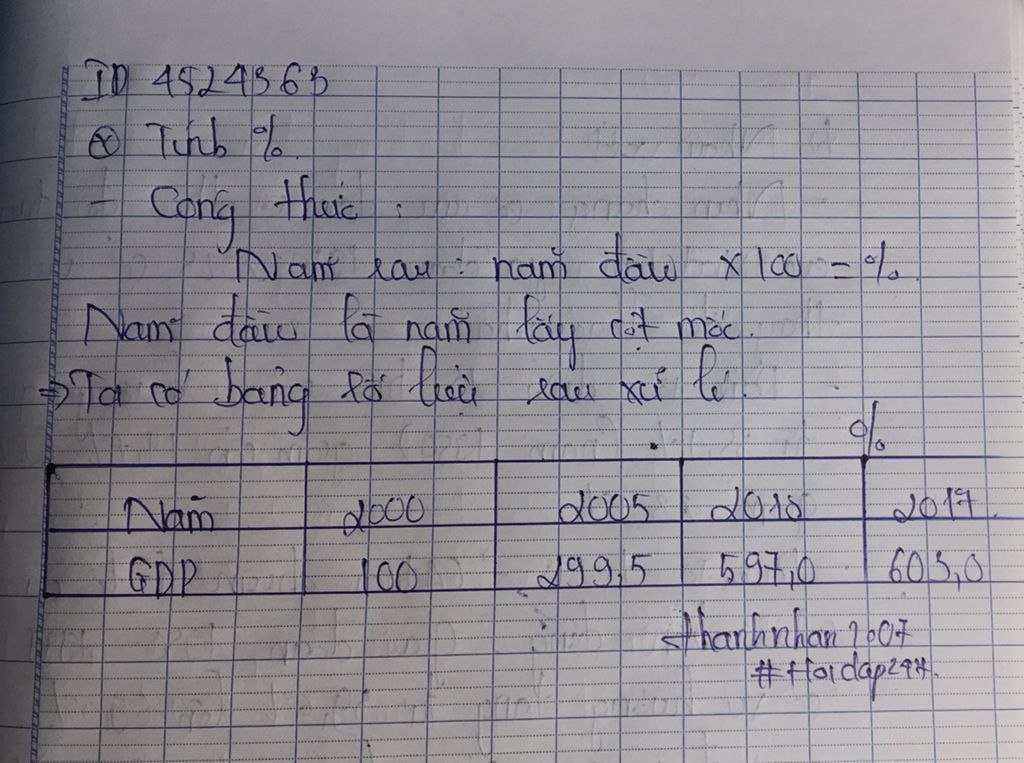 ID 4524363
⊗ Tính %.
- Công thức :
Năm sau : năm đầu × 100 = %.
Năm đầu là năm lấy cột mốc.
⇒ Ta có bảng số liệu sau xử lí.
%
Năm 2000 2005 2015 2017
GDP 100 299,5 597,0 603,0
thanhnhan2007
#Hoidap247.